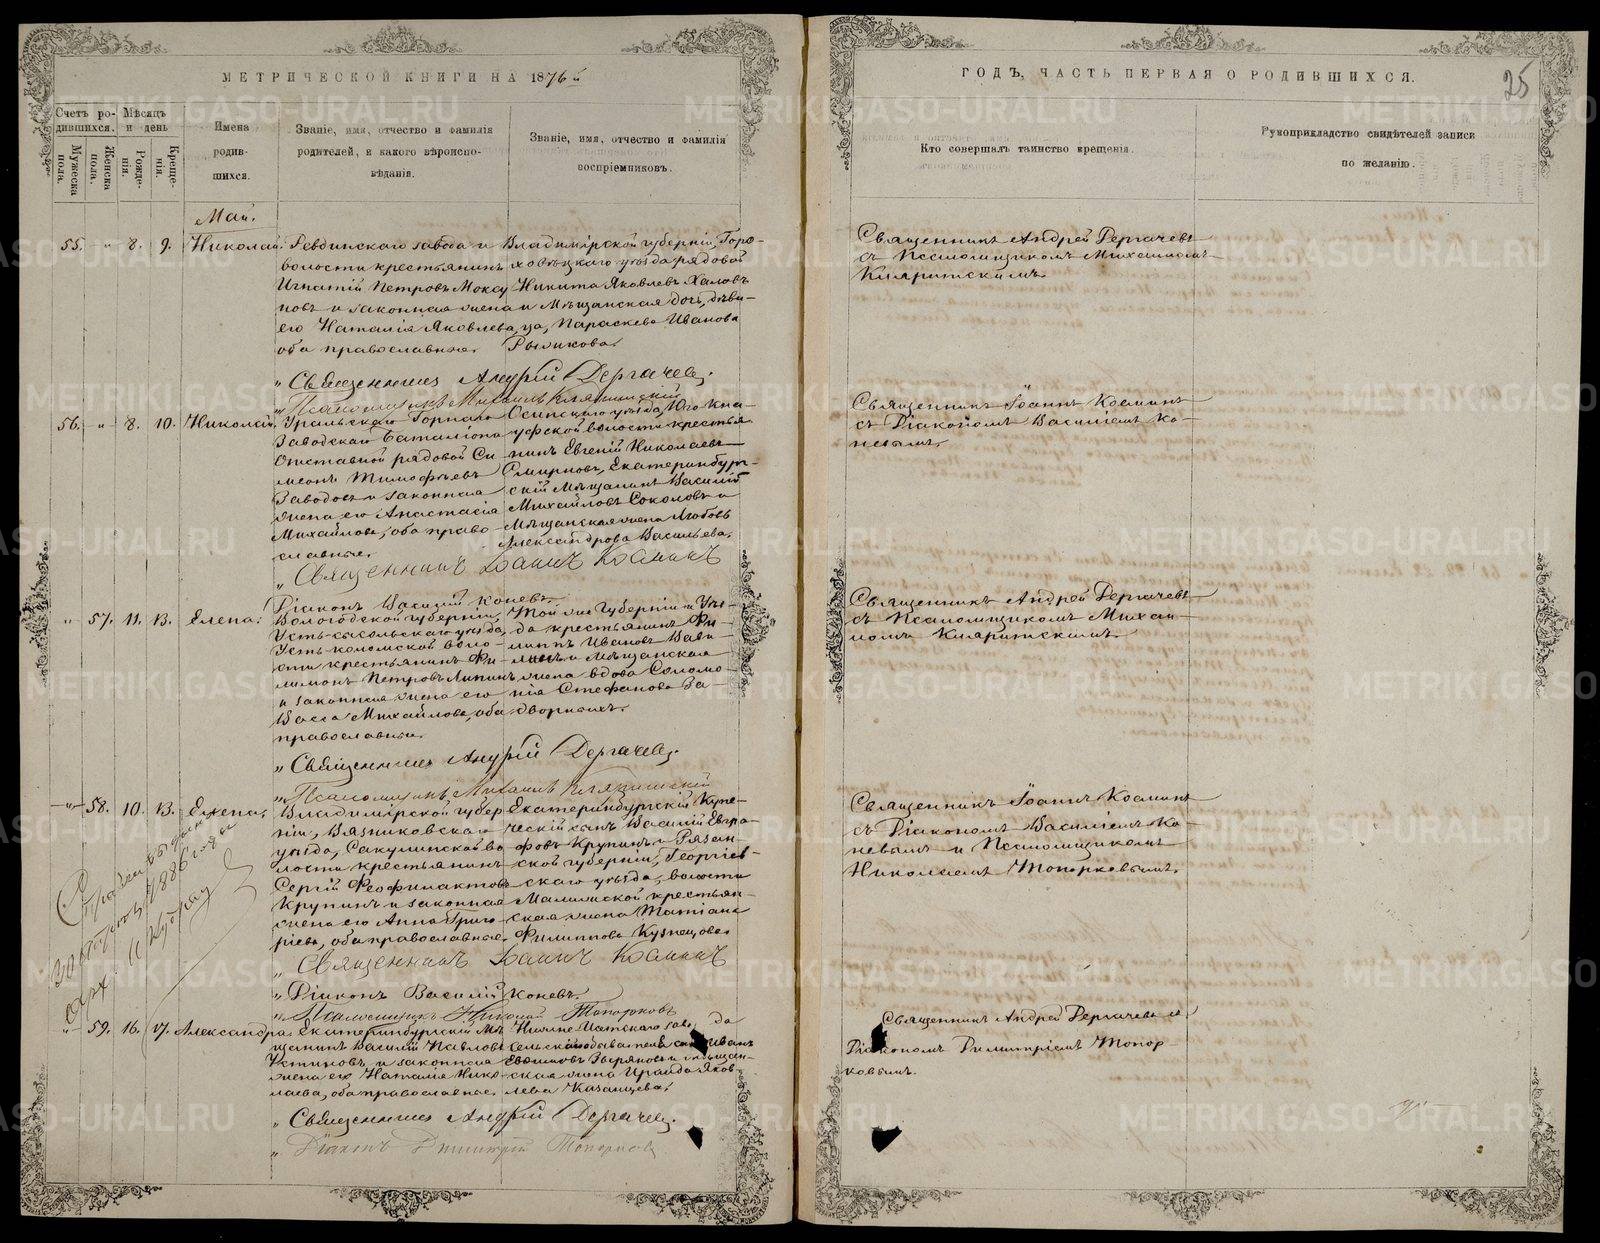 МЕТРИЧЕСКОЙ КНИГИ НА 1876й
Счетъ ро-
дившихся.
Мѣсяцъ
и день
Мужеска
пола.
Женска
пола.
Рожде-
нія.
Креще-
нія.
Имена
родив-
шихся.
Званіе, имя, отчество и фамилія
родителей, и какого вѣроиспо-
вѣданія.
Званіе, имя, отчество и фамилія
воспріемниковъ.
Май.
55. " 8. 9. Николай.
Ревдинскаго завода и
волости крестьянинъ
Игнатій Петровъ Моксу
новъ и законная жена
его Наталія Яковлева,
оба православные.
Владимірской губерніи, Горо-
ховецкаго уѣзда рядовой
Никита Яковлевъ Халовъ
и Мѣщанская дочь, дѣви-
ца, Параскева Иванова
Рыжикова.
" Священникъ Андрей Дергачевъ.
" Псаломщикъ Михаилъ Кляритскій
56. " 8. 10. Николай.
Уральскаго Горнаго
Заводскаго Баталіона
Отставной рядовой Си-
меонъ Тимофѣевъ
Заводовъ и законная
жена его Анастасія
Михайлова, оба право-
славные.
Осинскаго уѣзда, Юго-Кна-
уфской волости крестья-
нинъ Евгеній Николаевъ
Смирновъ, Екатеринбург-
скій Мѣщанинъ Василій
Михайловъ Соколовъ и
Мѣщанская жена Любовь
Александрова Васильева.
" Священникъ Іоаннъ Косминъ
Діаконъ Василій Коневъ.
" 57. 11. 13. Елена.
Вологодской губерніи,
Усть-сысольскаго уѣзда,
Усть-коломской воло-
сти крестьянинъ Фи-
лимонъ Петровъ Липинъ
и законная жена его
Васса Михайлова, оба
православные.
Той же Губерніи и Уѣз-
да крестьянинъ Фи-
липпъ Ивановъ Вави-
линъ и Мѣщанская
жена вдова Соломо-
нія Стефанова За-
дворныхъ.
" Священникъ Андрей Дергачевъ.
" Псаломщикъ Михаилъ Кляритскій
" 58. 10. 13. Елена.
Владимірской губер
ніи, Вязниковскаго
уѣзда, Сакулинской во
лости крестьянинъ
Сергій Феофилактовъ
Крупинъ и законная
жена его Анна Григо
рьева, оба православные.
Екатеринбургскій Купе-
ческій сынъ Василій Евгра-
фовъ Крупинъ и Рязан-
ской губерніи, Георгіев-
скаго уѣзда, волости
Малинской крестьян-
ская жена Татіана
Филиппова Кузнецова.
1886 года
" Священникъ Іоаннъ Косминъ
" Діаконъ Василій Коневъ.
" Псаломщикъ Николай Топорковъ
" 59. 16. 17. Александра.
Екатеринбургскій Мѣ
щанинъ Василій Павловъ
Устиновъ и законная
жена его Наталія Нико-
лаева, оба православные.
Нижне-Исетскаго заво да
Иванъ
Евфимовъ Зыряновъ и мѣщан-
ская жена Ираида Яков
лева Казанцева.
" Священникъ Андрей Дергачевъ.
" Діаконъ Димитрій Топорковъ
ГОДЪ, ЧАСТЬ ПЕРВАЯ О РОДИВШИХСЯ.
25
Кто совершалъ таинство крещенія.
Рукоприкладство свидѣтелей записи
по желанію.
Священникъ Андрей Дергачевъ
съ Псаломщикомъ Михаиломъ
Кляритскимъ.
Священникъ Іоаннъ Косминъ
съ Діакономъ Василіемъ Ко-
невымъ.
Священникъ Андрей Дергачевъ
съ Псаломщикомъ Михаи-
ломъ Кляритскимъ.
Священникъ Іоаннъ Косминъ
съ Діакономъ Василіемъ Ко-
невымъ и Псаломщикомъ
Николаемъ Топорковымъ.
Священникъ Андрей Дергачевъ съ
Діакономъ Димитріемъ Топор-
ковымъ.
METRIKI.GASO-URAL.RU